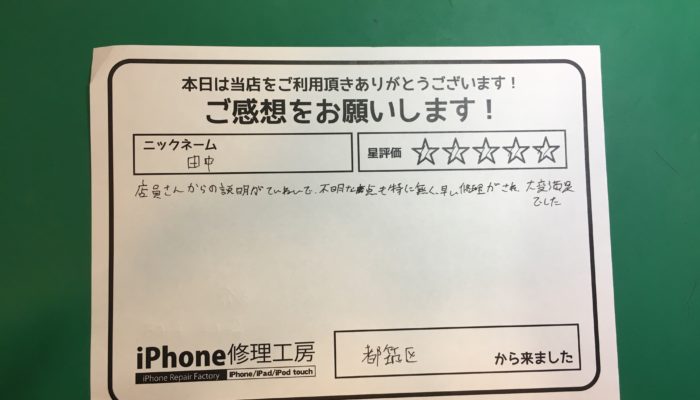 本日は当店をご利用頂きありがとうございます！
ご感想をお願いします！
ニックネーム
田中
星評価 ☆☆☆☆☆
店員さんからの説明がていねいで、不明な点も特に無く、早い修理がされ、大変満足
でした
都筑区
から来ました
iPhone修理工房
iPhone Repair Factory iPhone/iPad/iPod touch